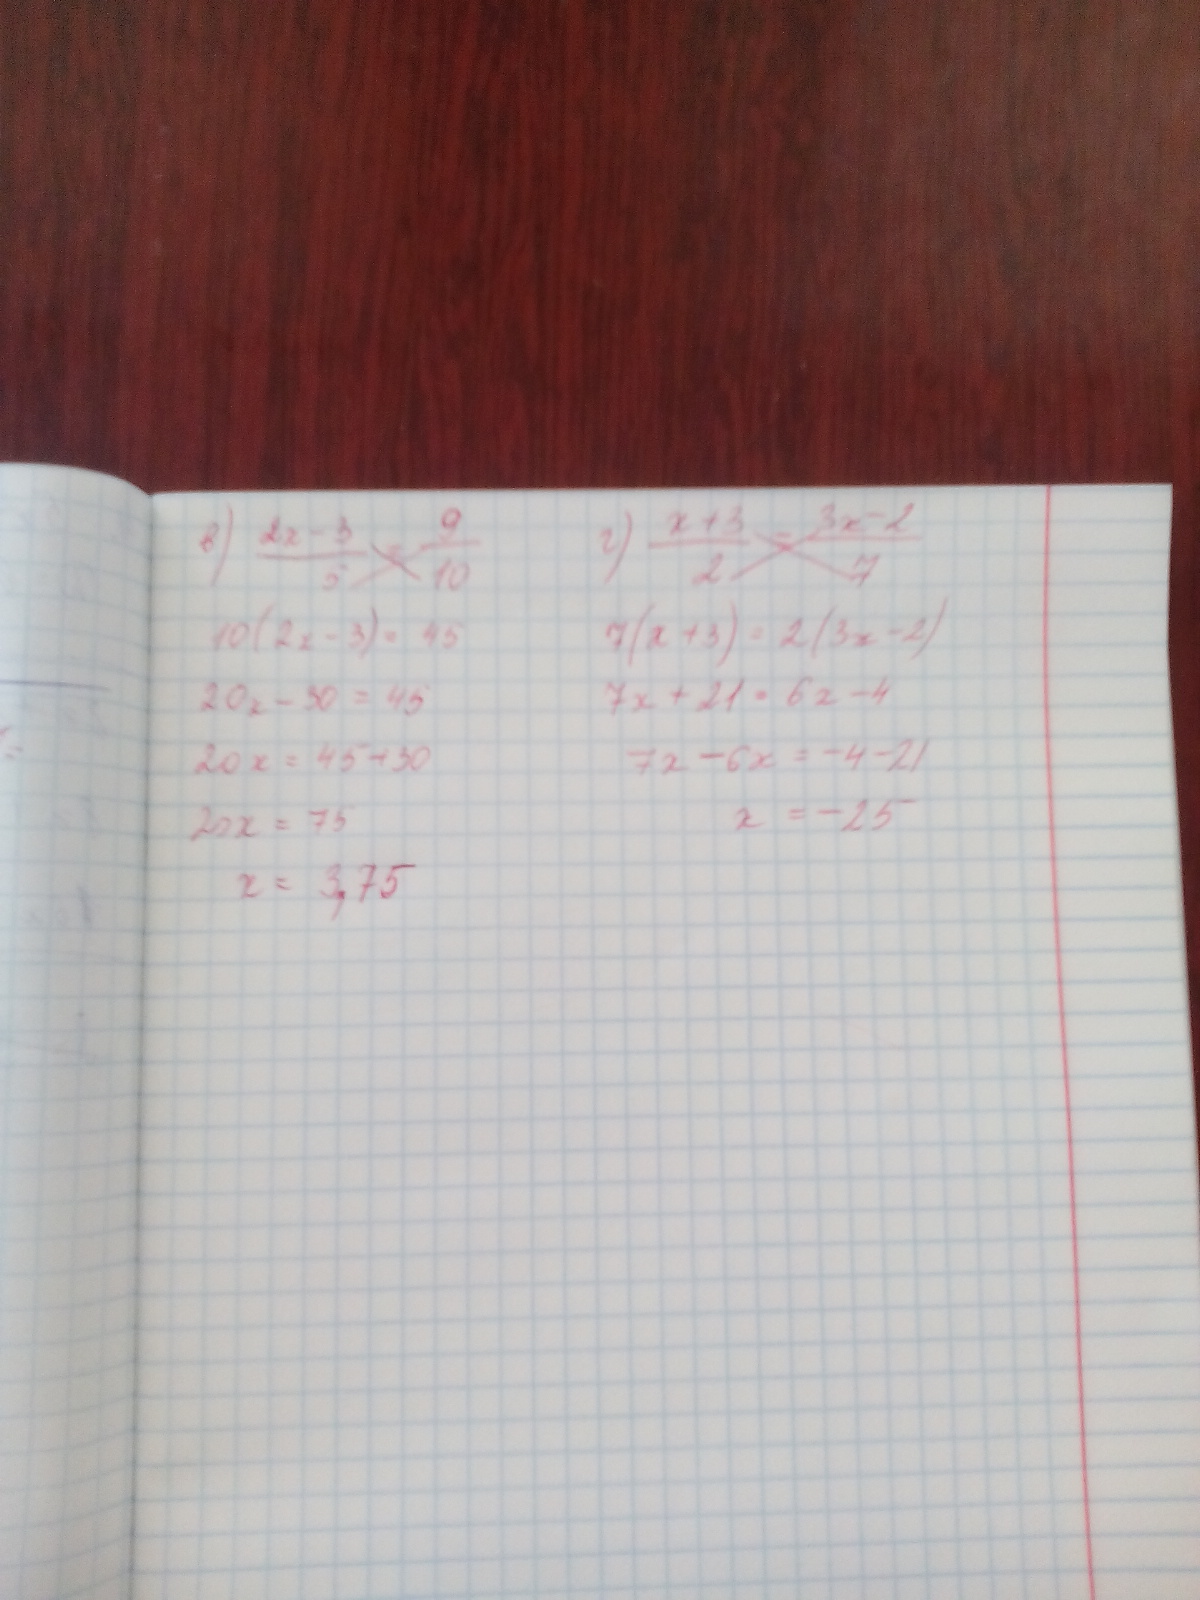 в) (2x - 3)/5 = 9/10
10(2x - 3) = 45
20x - 30 = 45
20x = 45 + 30
20x = 75
x = 3,75
г) (x + 3)/2 = (3x - 2)/7
7(x + 3) = 2(3x - 2)
7x + 21 = 6x - 4
7x - 6x = -4 - 21
x = -25